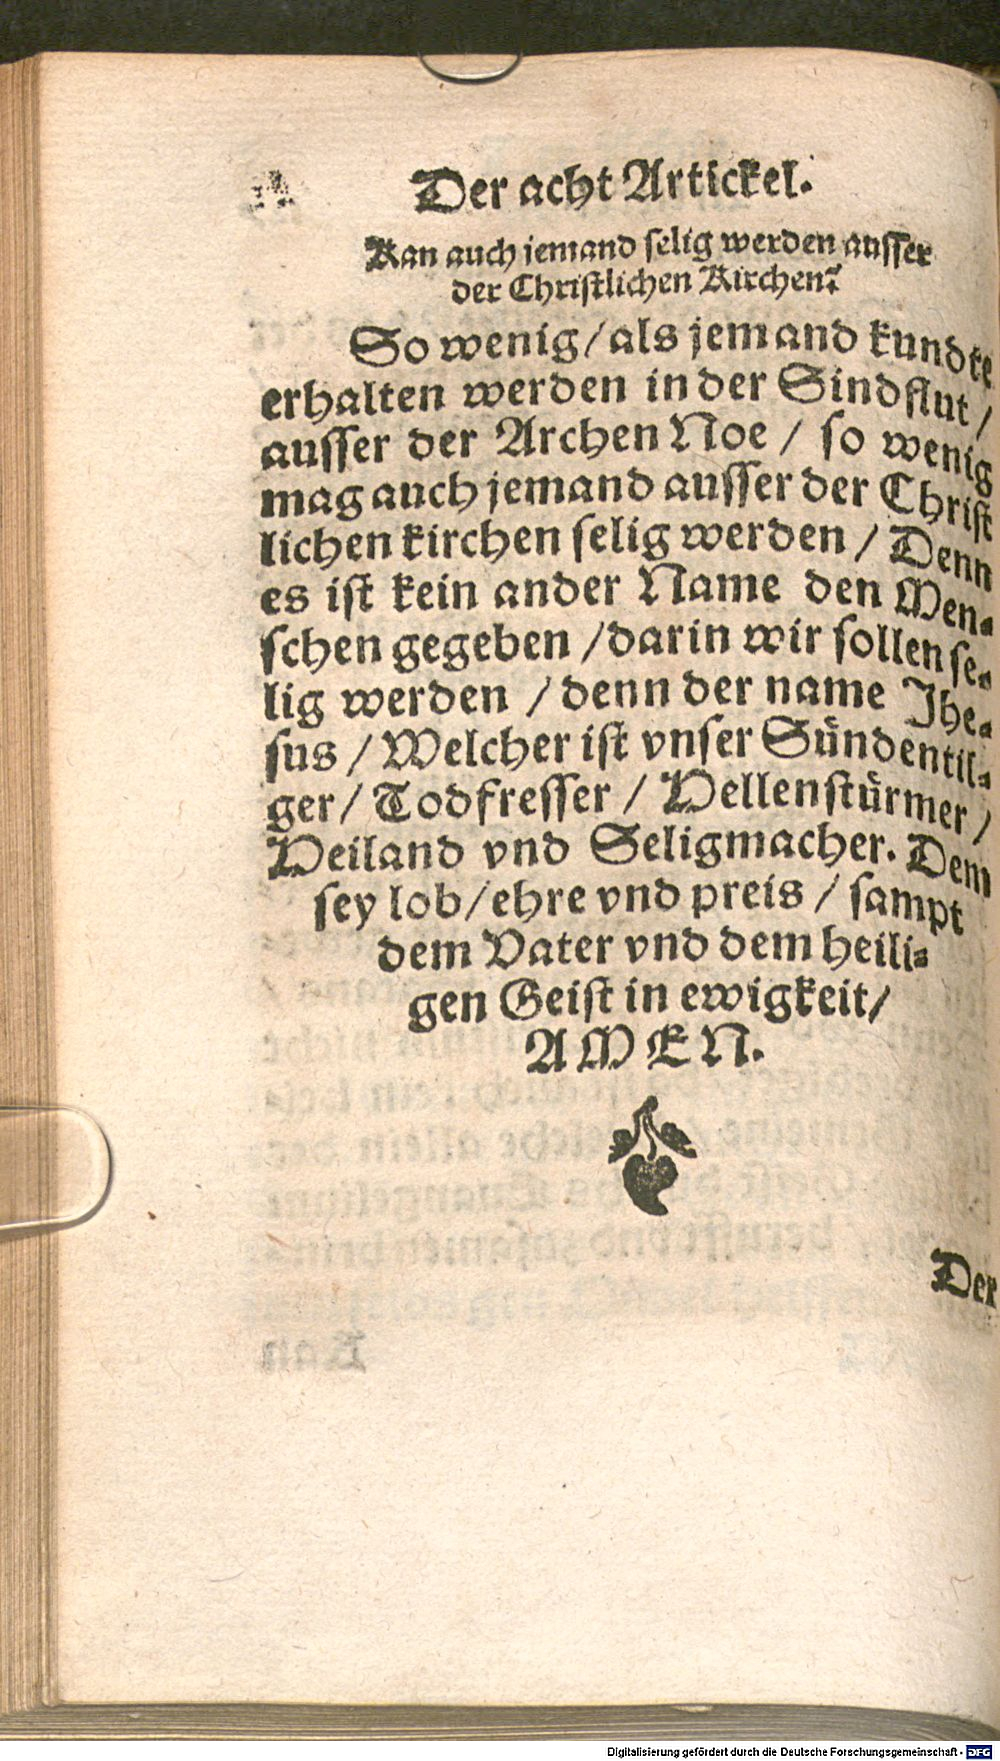 Der acht Artickel.
Kan auch jemand selig werden ausser
der Christlichen Kirchen?
So wenig / als jemand kundte
erhalten werden in der Sindflut /
ausser der Archen Noe / so wenig
mag auch jemand ausser der Christ
lichen kirchen selig werden / Denn
es ist kein ander Name den Men-
schen gegeben / darin wir sollen se-
lig werden / denn der name Jhe-
sus / Welcher ist vnser Sündentil-
ger / Todfresser / Hellenstürmer /
Heiland vnd Seligmacher. Dem
sey lob / ehre vnd preis / sampt
dem Vater vnd dem heili-
gen Geist in ewigkeit /
AMEN.
Der
Digitalisierung gefördert durch die Deutsche Forschungsgemeinschaft - DFG